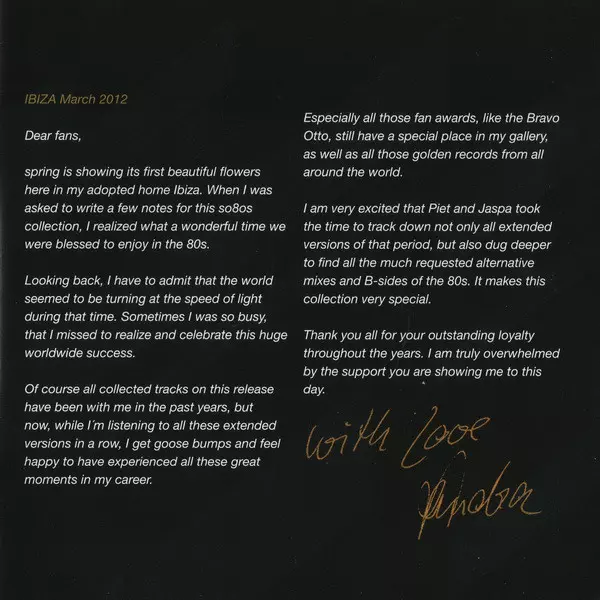 IBIZA March 2012
Dear fans,
spring is showing its first beautiful flowers
here in my adopted home Ibiza. When I was
asked to write a few notes for this so8os
collection, I realized what a wonderful time we
were blessed to enjoy in the 80s.
Looking back, I have to admit that the world
seemed to be turning at the speed of light
during that time. Sometimes I was so busy,
that I missed to realize and celebrate this huge
worldwide success.
Of course all collected tracks on this release
have been with me in the past years, but
now, while I´m listening to all these extended
versions in a row, I get goose bumps and feel
happy to have experienced all these great
moments in my career.
Especially all those fan awards, like the Bravo
Otto, still have a special place in my gallery,
as well as all those golden records from all
around the world.
I am very excited that Piet and Jaspa took
the time to track down not only all extended
versions of that period, but also dug deeper
to find all the much requested alternative
mixes and B-sides of the 80s. It makes this
collection very special.
Thank you all for your outstanding loyalty
throughout the years. I am truly overwhelmed
by the support you are showing me to this
day.
with Love